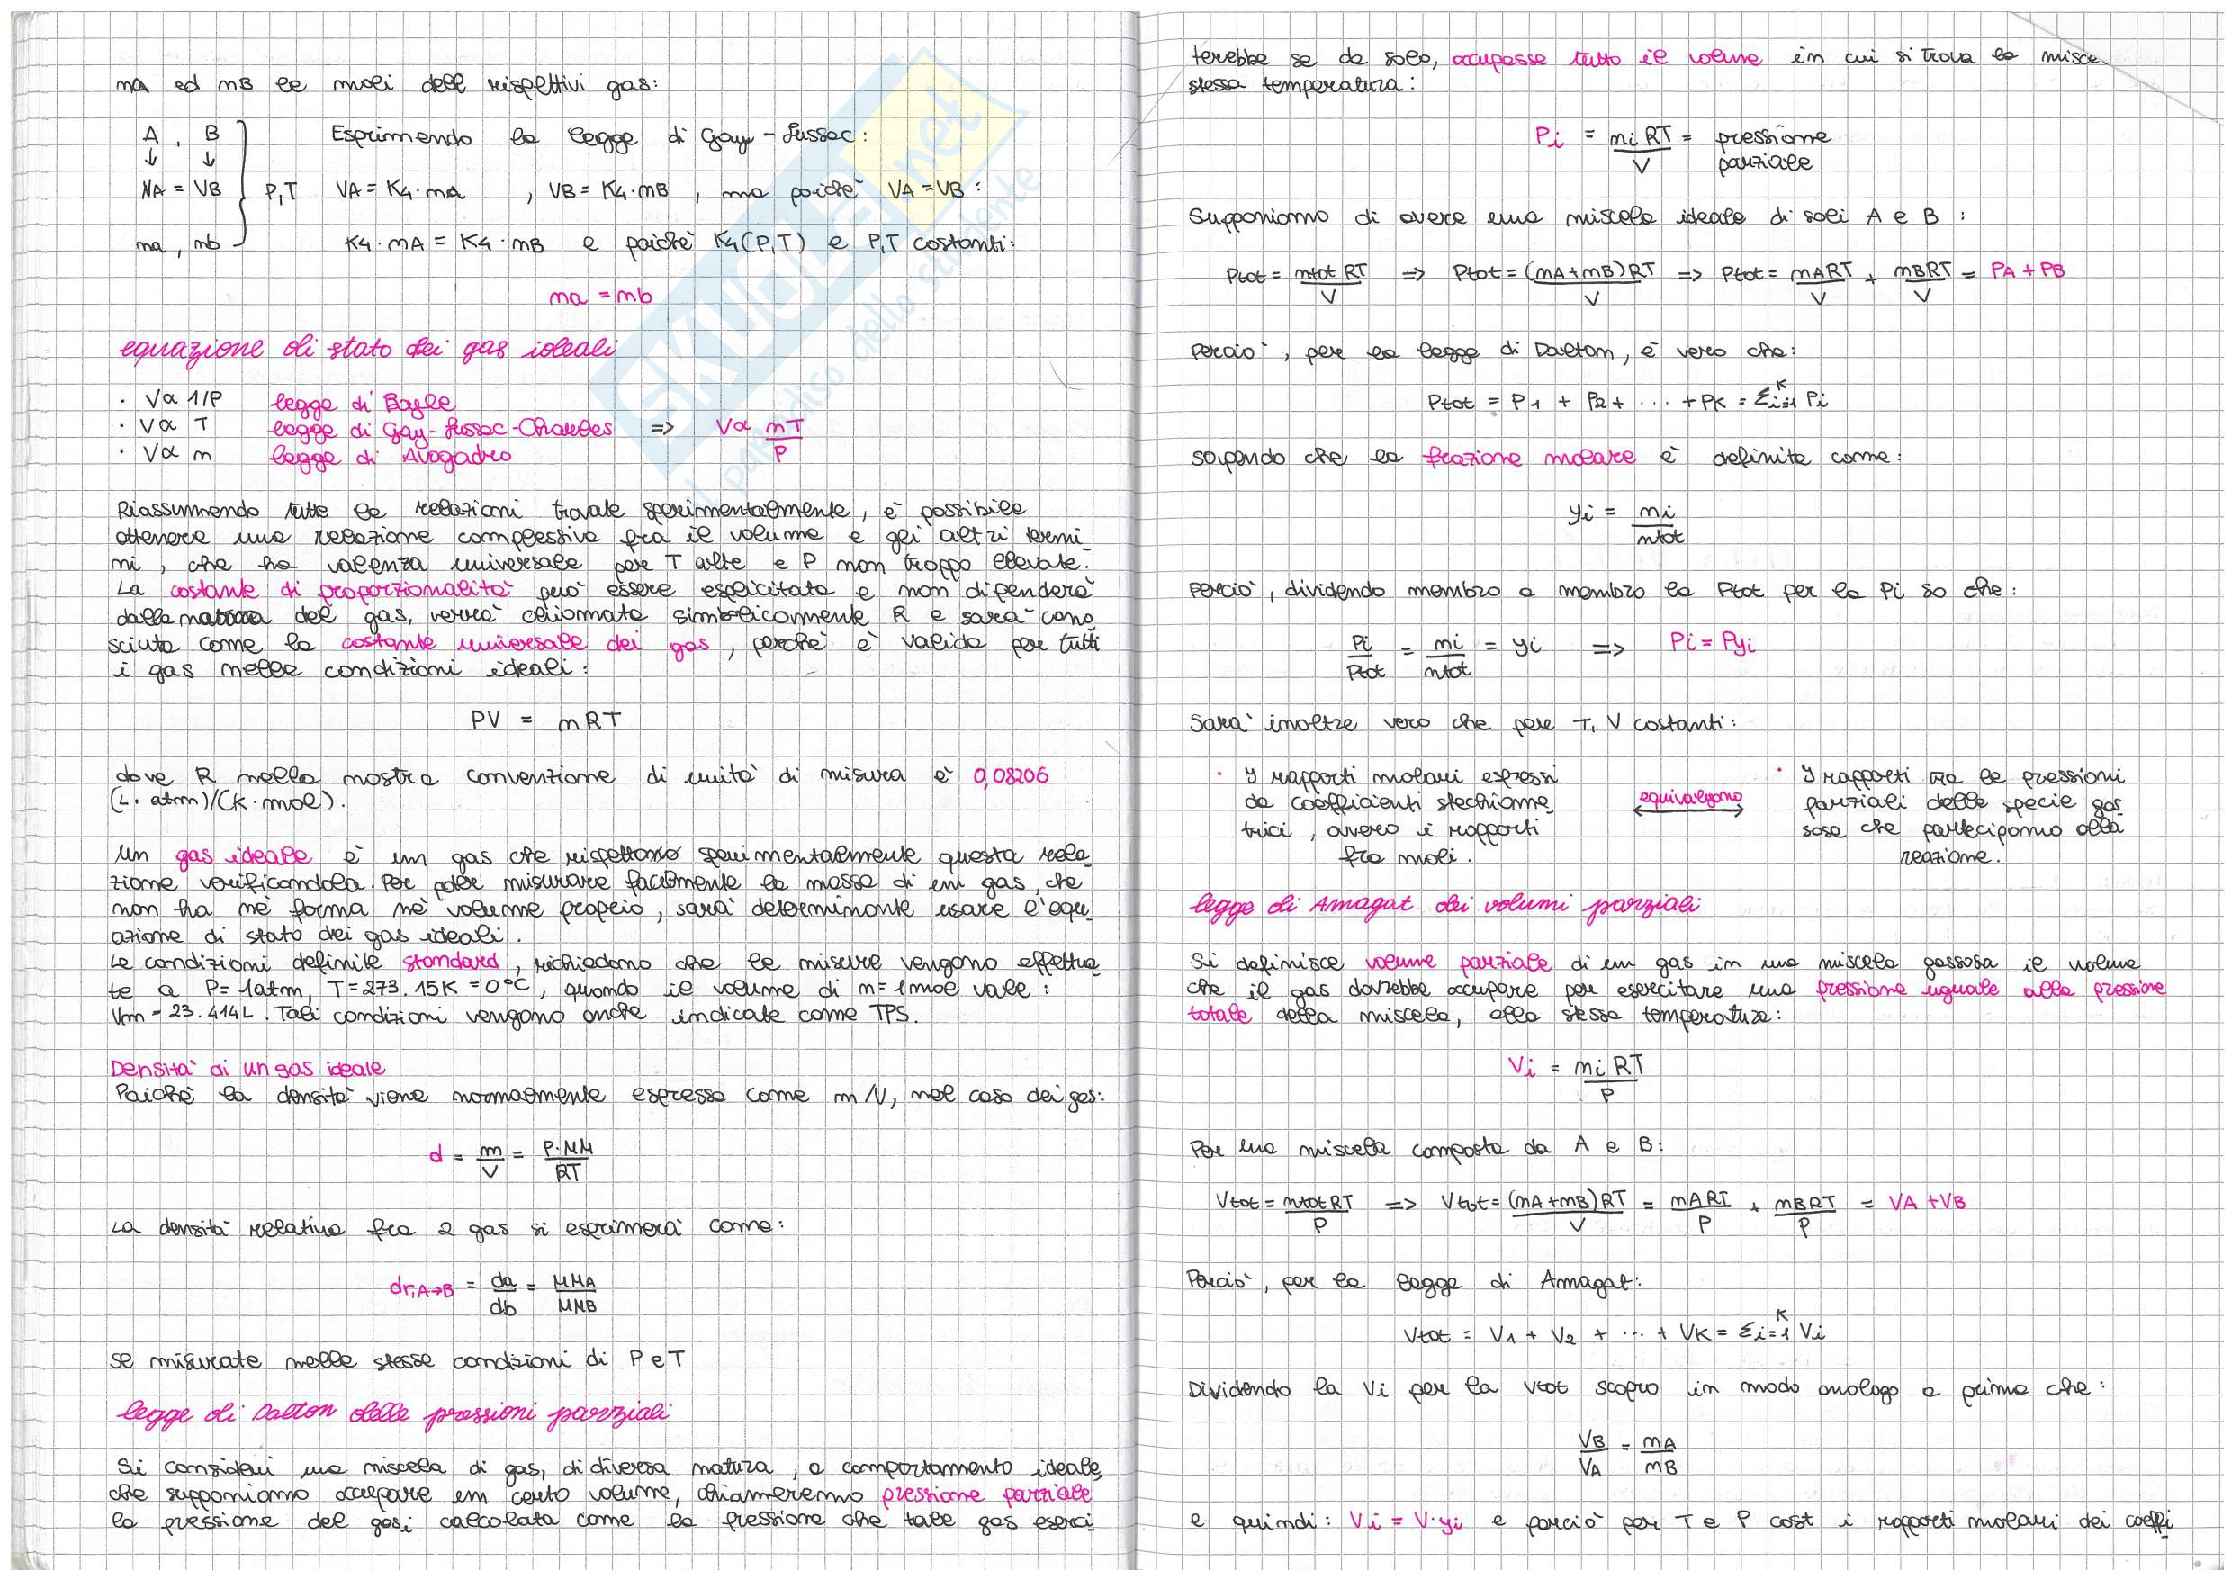 na ed nB le moli dell rispettivi gas:
A , B Esprimendo la legge di Gay-Lussac:
↓ ↓
VA = VB P,T VA = K4·nA , VB = K4·nB , ma poichè VA = VB :
na , nb K4·nA = K4·nB e poichè K4(P,T) e P,T costanti:
na = nb
equazione di stato dei gas ideali
· V∝ 1/P legge di Boyle
· V∝ T legge di Gay-Lussac-Charles => V∝ nT/P
· V∝ n legge di Avogadro
Riassumendo tutte le relazioni trovate sperimentalmente, è possibile
ottenere una relazione complessiva fra il volume e gli altri termi_
ni, che ha valenza universale per T alte e P non troppo elevate.
La costante di proporzionalità può essere esplicitata e non dipenderà
dalla natura del gas, verrà chiamata simbolicamente R e sarà cono_
sciuta come la costante universale dei gas, perchè è valida per tutti
i gas nelle condizioni ideali:
PV = nRT
dove R nella nostra convenzione di unità di misura è 0,08206
(L·atm)/(K·mol).
Un gas ideale è un gas che rispettano sperimentalmente questa rela_
zione verificandola. Per poter misurare facilmente la massa di un gas, che
non ha nè forma nè volume proprio, sarà determinante usare l'equ_
azione di stato dei gas ideali.
Le condizioni definite standard, richiedono che le misure vengono effettua_
te a P= 1atm, T=273.15K =0°C, quando il volume di n= 1mol vale:
Vm = 23.414L. Tali condizioni vengono anche indicate come TPS.
Densità di un gas ideale
Poichè la densità viene normalmente espressa come m/V, nel caso dei gas:
d = m/V = P·MM/RT
La densità relativa fra 2 gas si esprimerà come:
dr,A→B = da/db = MMA/MMB
se misurate nelle stesse condizioni di P e T
legge di Dalton delle pressioni parziali
Si consideri una miscela di gas, di diversa natura, a comportamento ideale,
che supponiamo occupare un certo volume, chiameremo pressione parziale
la pressione del gas i calcolata come la pressione che tale gas eserci_
terebbe se da solo, occupasse tutto il volume in cui si trova la misce
stessa temperatura:
Pi = niRT/V = pressione
parziale
Supponiamo di avere una miscela ideale di soli A e B :
Ptot = ntot RT/V => Ptot = (nA+nB)RT/V => Ptot = nART/V + nBRT/V = PA + PB
Perciò, per la legge di Dalton, è vero che:
Ptot = P1 + P2 + ... + PK = Σi=1^K Pi
sapendo che la frazione molare è definita come:
yi = ni/ntot
perciò, dividendo membro a membro la Ptot per la Pi so che:
Pi/Ptot = ni/ntot = yi => Pi = Pyi
Sarà inoltre vero che per T, V costanti:
· I rapporti molari espressi
da coefficienti stechiome_
trici, ovvero i rapporti
fra moli.
equivalgono
· I rapporti tra le pressioni
parziali delle specie gas_
sose che partecipano alla
reazione.
legge di Amagat dei volumi parziali
Si definisce volume parziale di un gas in una miscela gassosa il volume
che il gas dovrebbe occupare per esercitare una pressione uguale alla pressione
totale della miscela, alla stessa temperatura:
Vi = niRT/P
Per una miscela composta da A e B:
Vtot = ntotRT/P => Vtot = (nA+nB)RT/V = nART/P + nBRT/P = VA + VB
Perciò, per la legge di Amagat:
Vtot = V1 + V2 + ... + VK = Σi=1^K Vi
Dividendo la Vi per la Vtot scopro in modo analogo a prima che:
VB/VA = nA/nB
e quindi: Vi = V·yi e perciò per T e P cost i rapporti molari dei coeffi_
SKUOLA.net
il paradiso dello studente